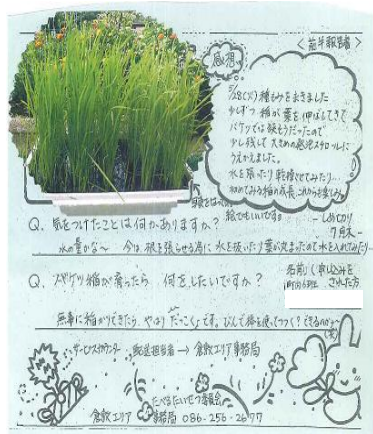 ＜前半報告書＞
感想
5/28(火)種もみをまきました
少しずつ 稲が葉を伸ばしてきて
バケツでは狭そうだったので
少し残して 大きめの発泡スチロールに
うえかえました。
水を張ったり 乾燥させてみたり…
初めてみる稲の成長、これからも楽しみ
絵でもいいです。
しめきり
7月末
Q. 気をつけたことは何かありますか？
水の量かな～ 今は、根を張らせる為に 水を抜いたり 葉が丸まったので水を入れてみたり…
Q. バケツ稲が育ったら 何をしたいですか？
名前（申し込みをされた方）
無事に稲ができたら、やはり だっこくです。びんで棒を使ってつつく？できるのかナ…
(笑)
サービスカウンター
配送担当者→倉敷エリア事務局
たべるたいせつ委員会
倉敷エリア 事務局 086-256-2677